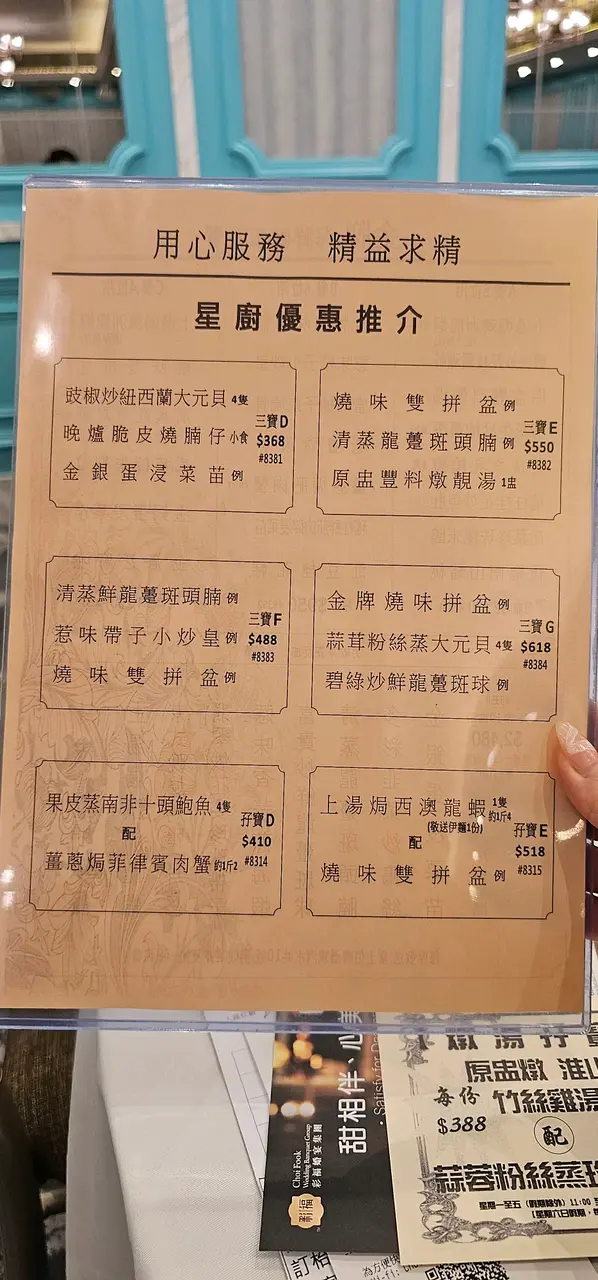 用心服務 精益求精
星廚優惠推介
豉椒炒紐西蘭大元貝 4隻
晚爐脆皮燒腩仔 小食
金銀蛋浸菜苗 例
三寶D
$368
#8381
燒味雙拼盆 例
清蒸龍躉斑頭腩 例
原盅豐料燉靚湯 1盅
三寶E
$550
#8382
清蒸鮮龍躉斑頭腩 例
惹味帶子小炒皇 例
燒味雙拼盆 例
三寶F
$488
#8383
金牌燒味拼盆 例
蒜茸粉絲蒸大元貝 4隻
碧綠炒鮮龍躉斑球 例
三寶G
$618
#8384
果皮蒸南非十頭鮑魚 4隻
配
薑蔥焗菲律賓肉蟹 約1斤2
孖寶D
$410
#8314
上湯焗西澳龍蝦 1隻 約1斤4
(敬送伊麵1份)
配
燒味雙拼盆 例
孖寶E
$518
#8315
甜相伴、心美
Satisfy for De
Choi Fook
Wedding Banquet Group
彩福婚宴集團
彩福
燉湯孖寶
原盅燉 淮山
每份 竹絲雞湯
$388
配
蒜蓉粉絲蒸
星期一至五
訂
為方便快